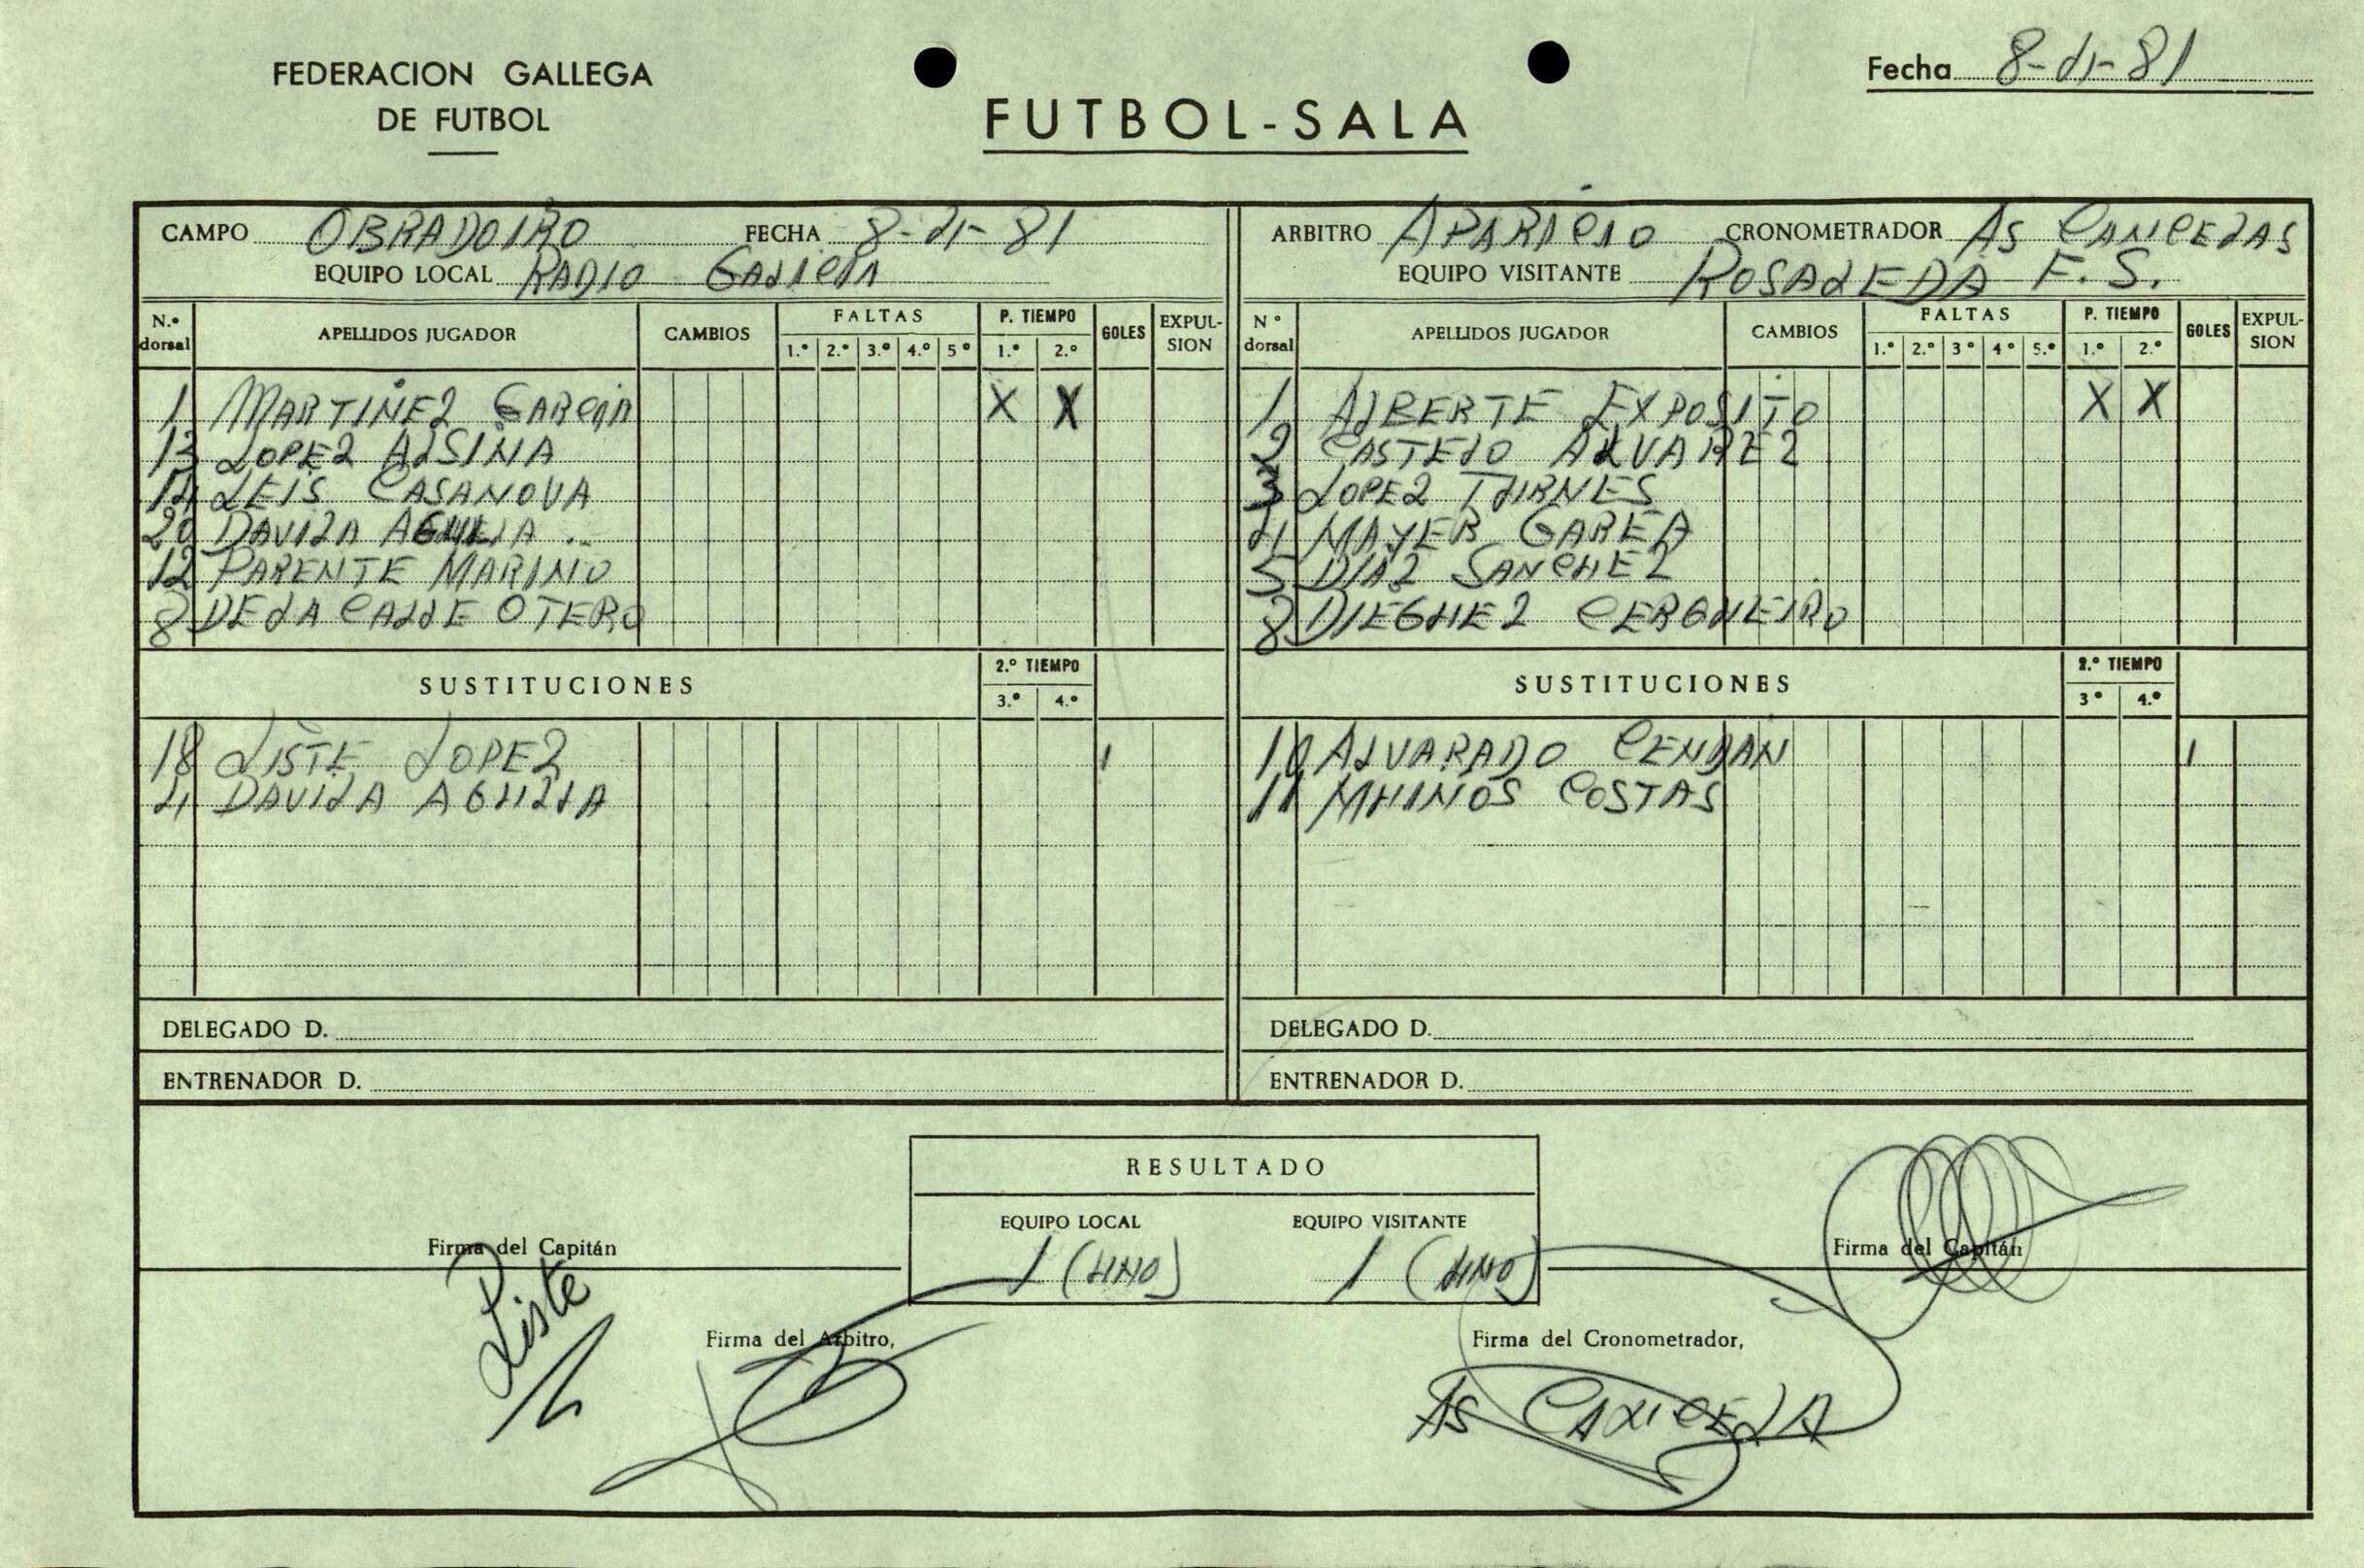 FEDERACION GALLEGA
DE FUTBOL
FUTBOL-SALA
Fecha 8-4-81
CAMPO OBRADOIRO FECHA 8-4-81
EQUIPO LOCAL RADIO GALICIA
ARBITRO APARICIO CRONOMETRADOR AS CANCELAS
EQUIPO VISITANTE ROSALEDA F.S.
N.º dorsal APELLIDOS JUGADOR CAMBIOS FALTAS 1.º 2.º 3.º 4.º 5º P. TIEMPO 1.º 2.º GOLES EXPULSION
1 MARTINEZ GARCIA X X
13 LOPEZ ALSINA
14 LEIS CASANOVA
20 DAVILA
12 PARENTE MARINO
8 DE LA CALLE OTERO
SUSTITUCIONES 2.º TIEMPO 3.º 4.º
18 LISTE LOPEZ 1
4 DAVILA AGUILLA
DELEGADO D.
ENTRENADOR D.
Nº dorsal APELLIDOS JUGADOR CAMBIOS FALTAS 1.º 2.º 3º 4º 5.º P. TIEMPO 1.º 2.º GOLES EXPULSION
1 ALBERTE EXPOSITO X X
2 CASTELO ALVAREZ
3 LOPEZ
4 MAYER GAREA
5 DIAZ SANCHEZ
8 DIEGUEZ CERQUEIRO
SUSTITUCIONES 2.º TIEMPO 3º 4.º
10 ALVARADO CENDAN 1
11 MUINOS COSTAS
DELEGADO D.
ENTRENADOR D.
RESULTADO
EQUIPO LOCAL EQUIPO VISITANTE
1 (UNO) 1 (UNO)
Firma del Capitán
Liste
Firma del Capitán
Firma del Arbitro,
Firma del Cronometrador,
AS